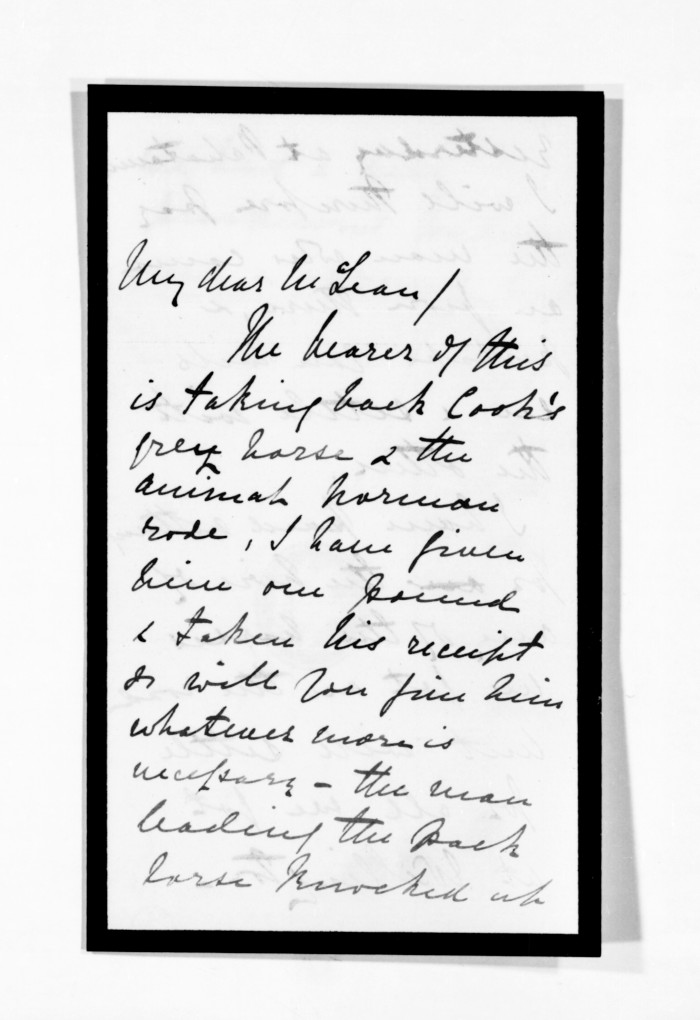 My dear McLean/
The bearer of this
is taking back Cook's
grey horse & the
animal Norman
rode, I have given
him one pound
& taken his receipt
so will you give him
whatever more is
necessary - the man
leading the pack
horse knocked up